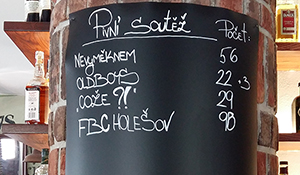 Pivní soutěž Počet:
Nevyměknem 56
OLDBOYS 22 +3
"COŽE ?!" 29
FBC HOLEŠOV 98